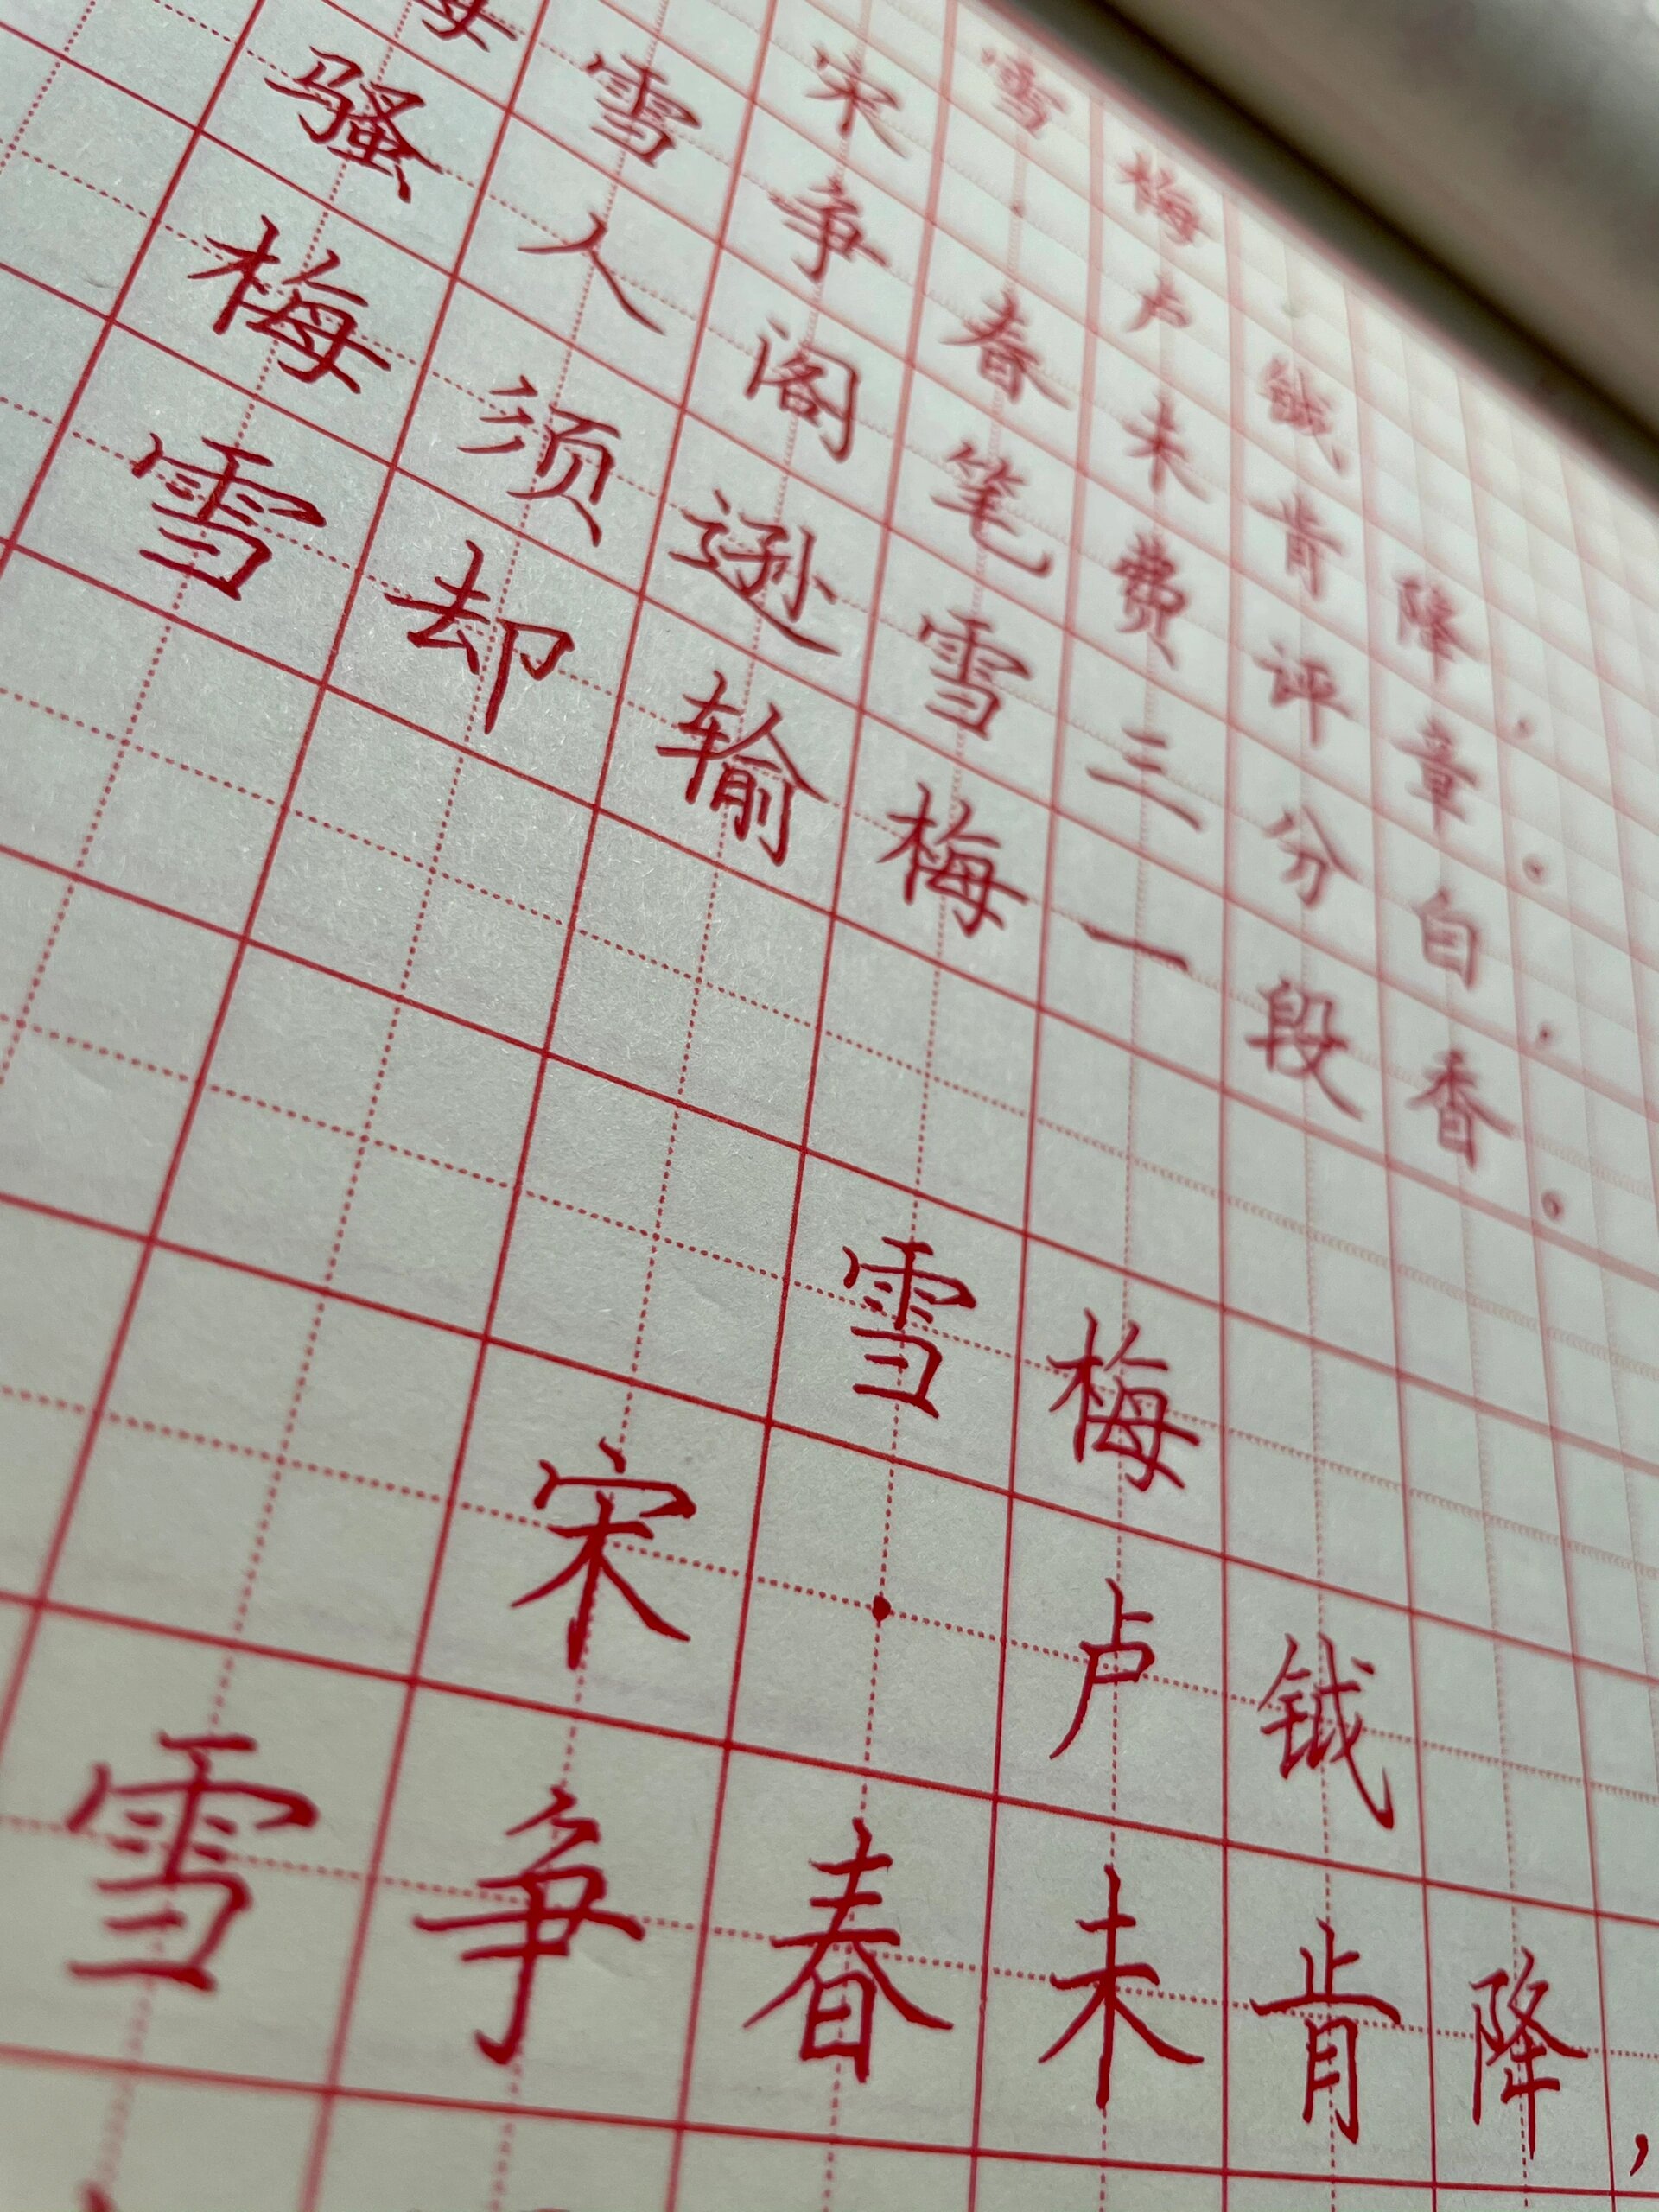 雪梅
宋·卢钺
梅雪争春未肯降,
骚人阁笔费评章。
梅须逊雪三分白,
雪却输梅一段香。
雪梅
宋·卢钺
雪争春未肯降,